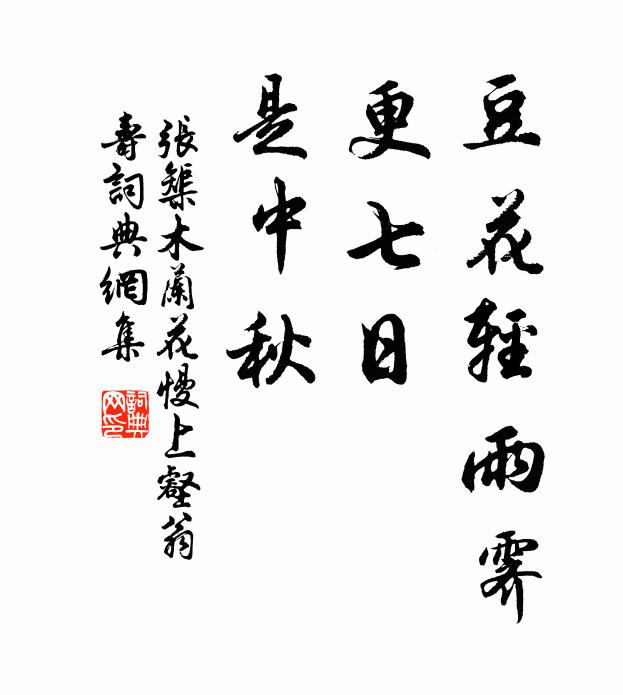 豆花輕雨霽
更七日
是中秋
張榘木蘭花慢上壑翁
壽詞典網集
詞典
网印